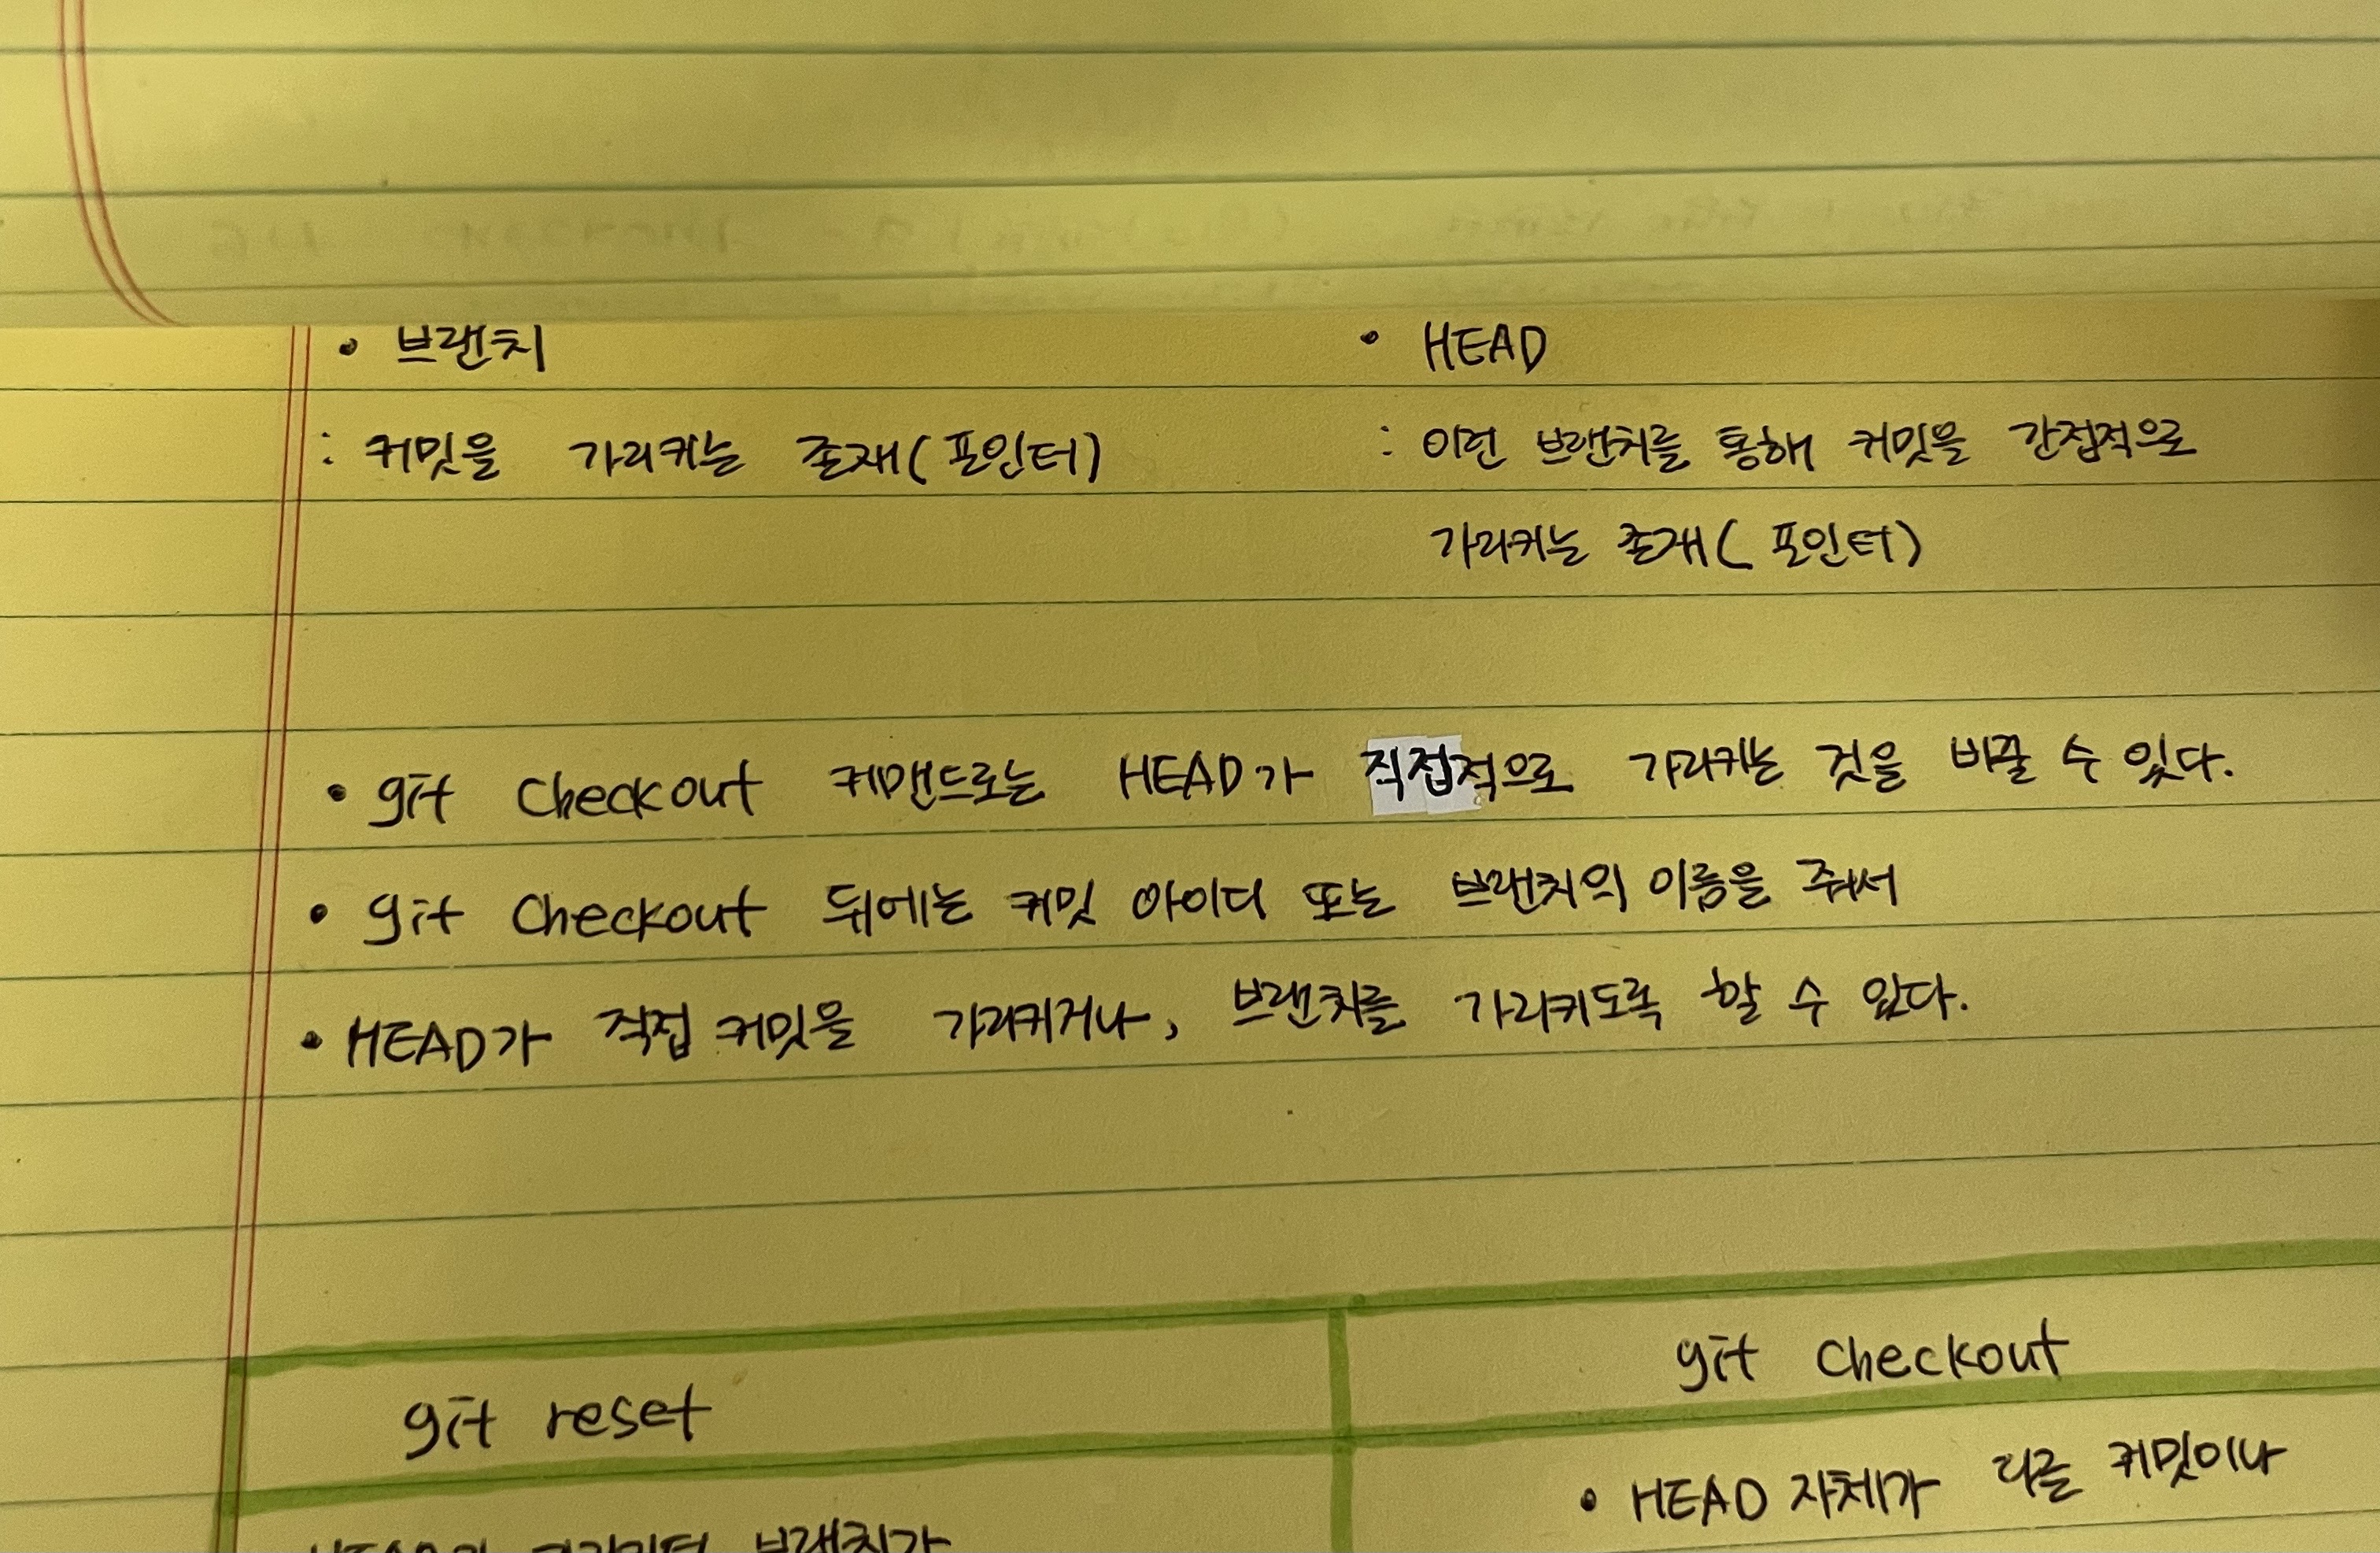 • 브랜치
: 커밋을 가리키는 존재(포인터)
• HEAD
: 이런 브랜치를 통해 커밋을 간접적으로
가리키는 존재(포인터)
• git checkout 커맨드로는 HEAD가 직접적으로 가리키는 것을 바꿀 수 있다.
• git checkout 뒤에는 커밋 아이디 또는 브랜치의 이름을 줘서
• HEAD가 직접 커밋을 가리키거나, 브랜치를 가리키도록 할 수 있다.
git reset
git checkout
• HEAD 자체가 다른 커밋이나
브랜치가